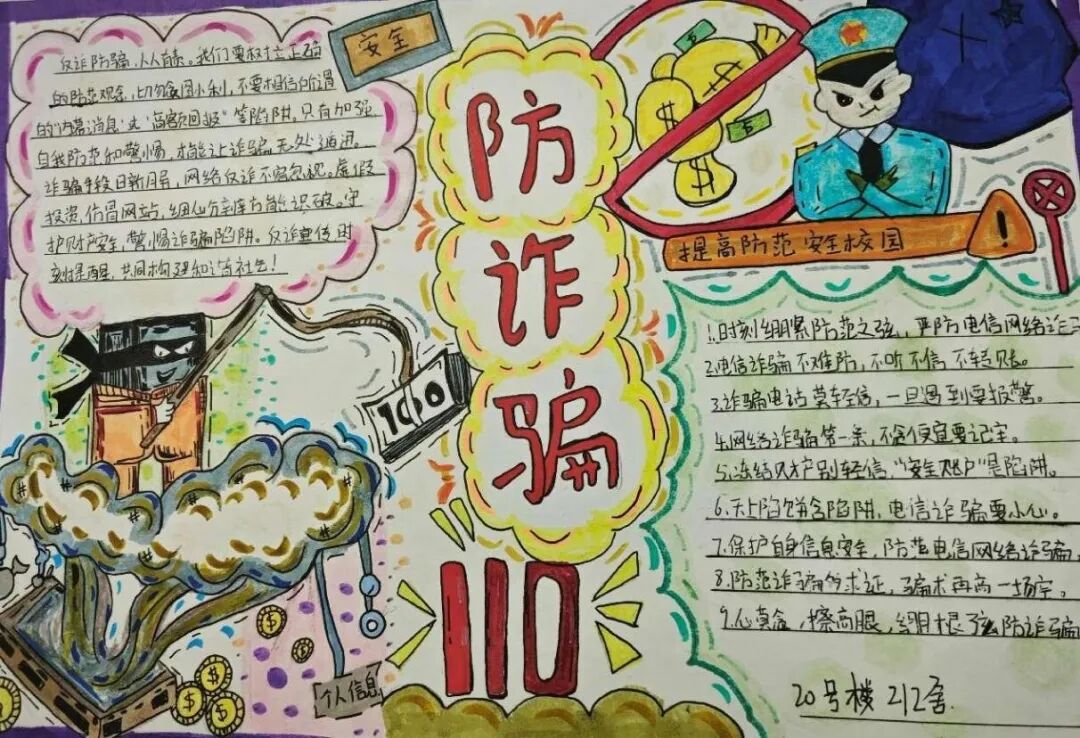 安全
反诈防骗，人人有责。我们要树立正确
的防范观念，切勿贪图小利，不要相信所谓
的"内幕消息"或"高额回报"等陷阱，只有加强
自我防范和警惕，才能让诈骗无处遁迅。
诈骗手段日新月异，网络反诈不容忽视。虚假
投资，仿冒网站，细心分辨方能识破。守
护财产安全，警惕诈骗陷阱。反诈宣传时
刻，共同构建和谐社会！
防
诈
骗
110
100
个人信息
提高防范 安全校园
1.时刻绷紧防范之弦，严防电信网络诈
2.电信诈骗不难防，不听不信不轻
3.诈骗电话莫轻信，一旦遇到要报警。
4.网络诈骗第一条，不贪便宜要记牢。
5.冻结财产别轻信，"安全账户"是陷阱。
6.天上陷饼含陷阱，电信诈骗要小心。
7.保护自身信息安全，防范电信网络诈骗
8.防范诈骗勿求证，骗术再高一场空。
9.心莫贪，擦亮眼，绷根弦防诈骗
20号楼 212舍